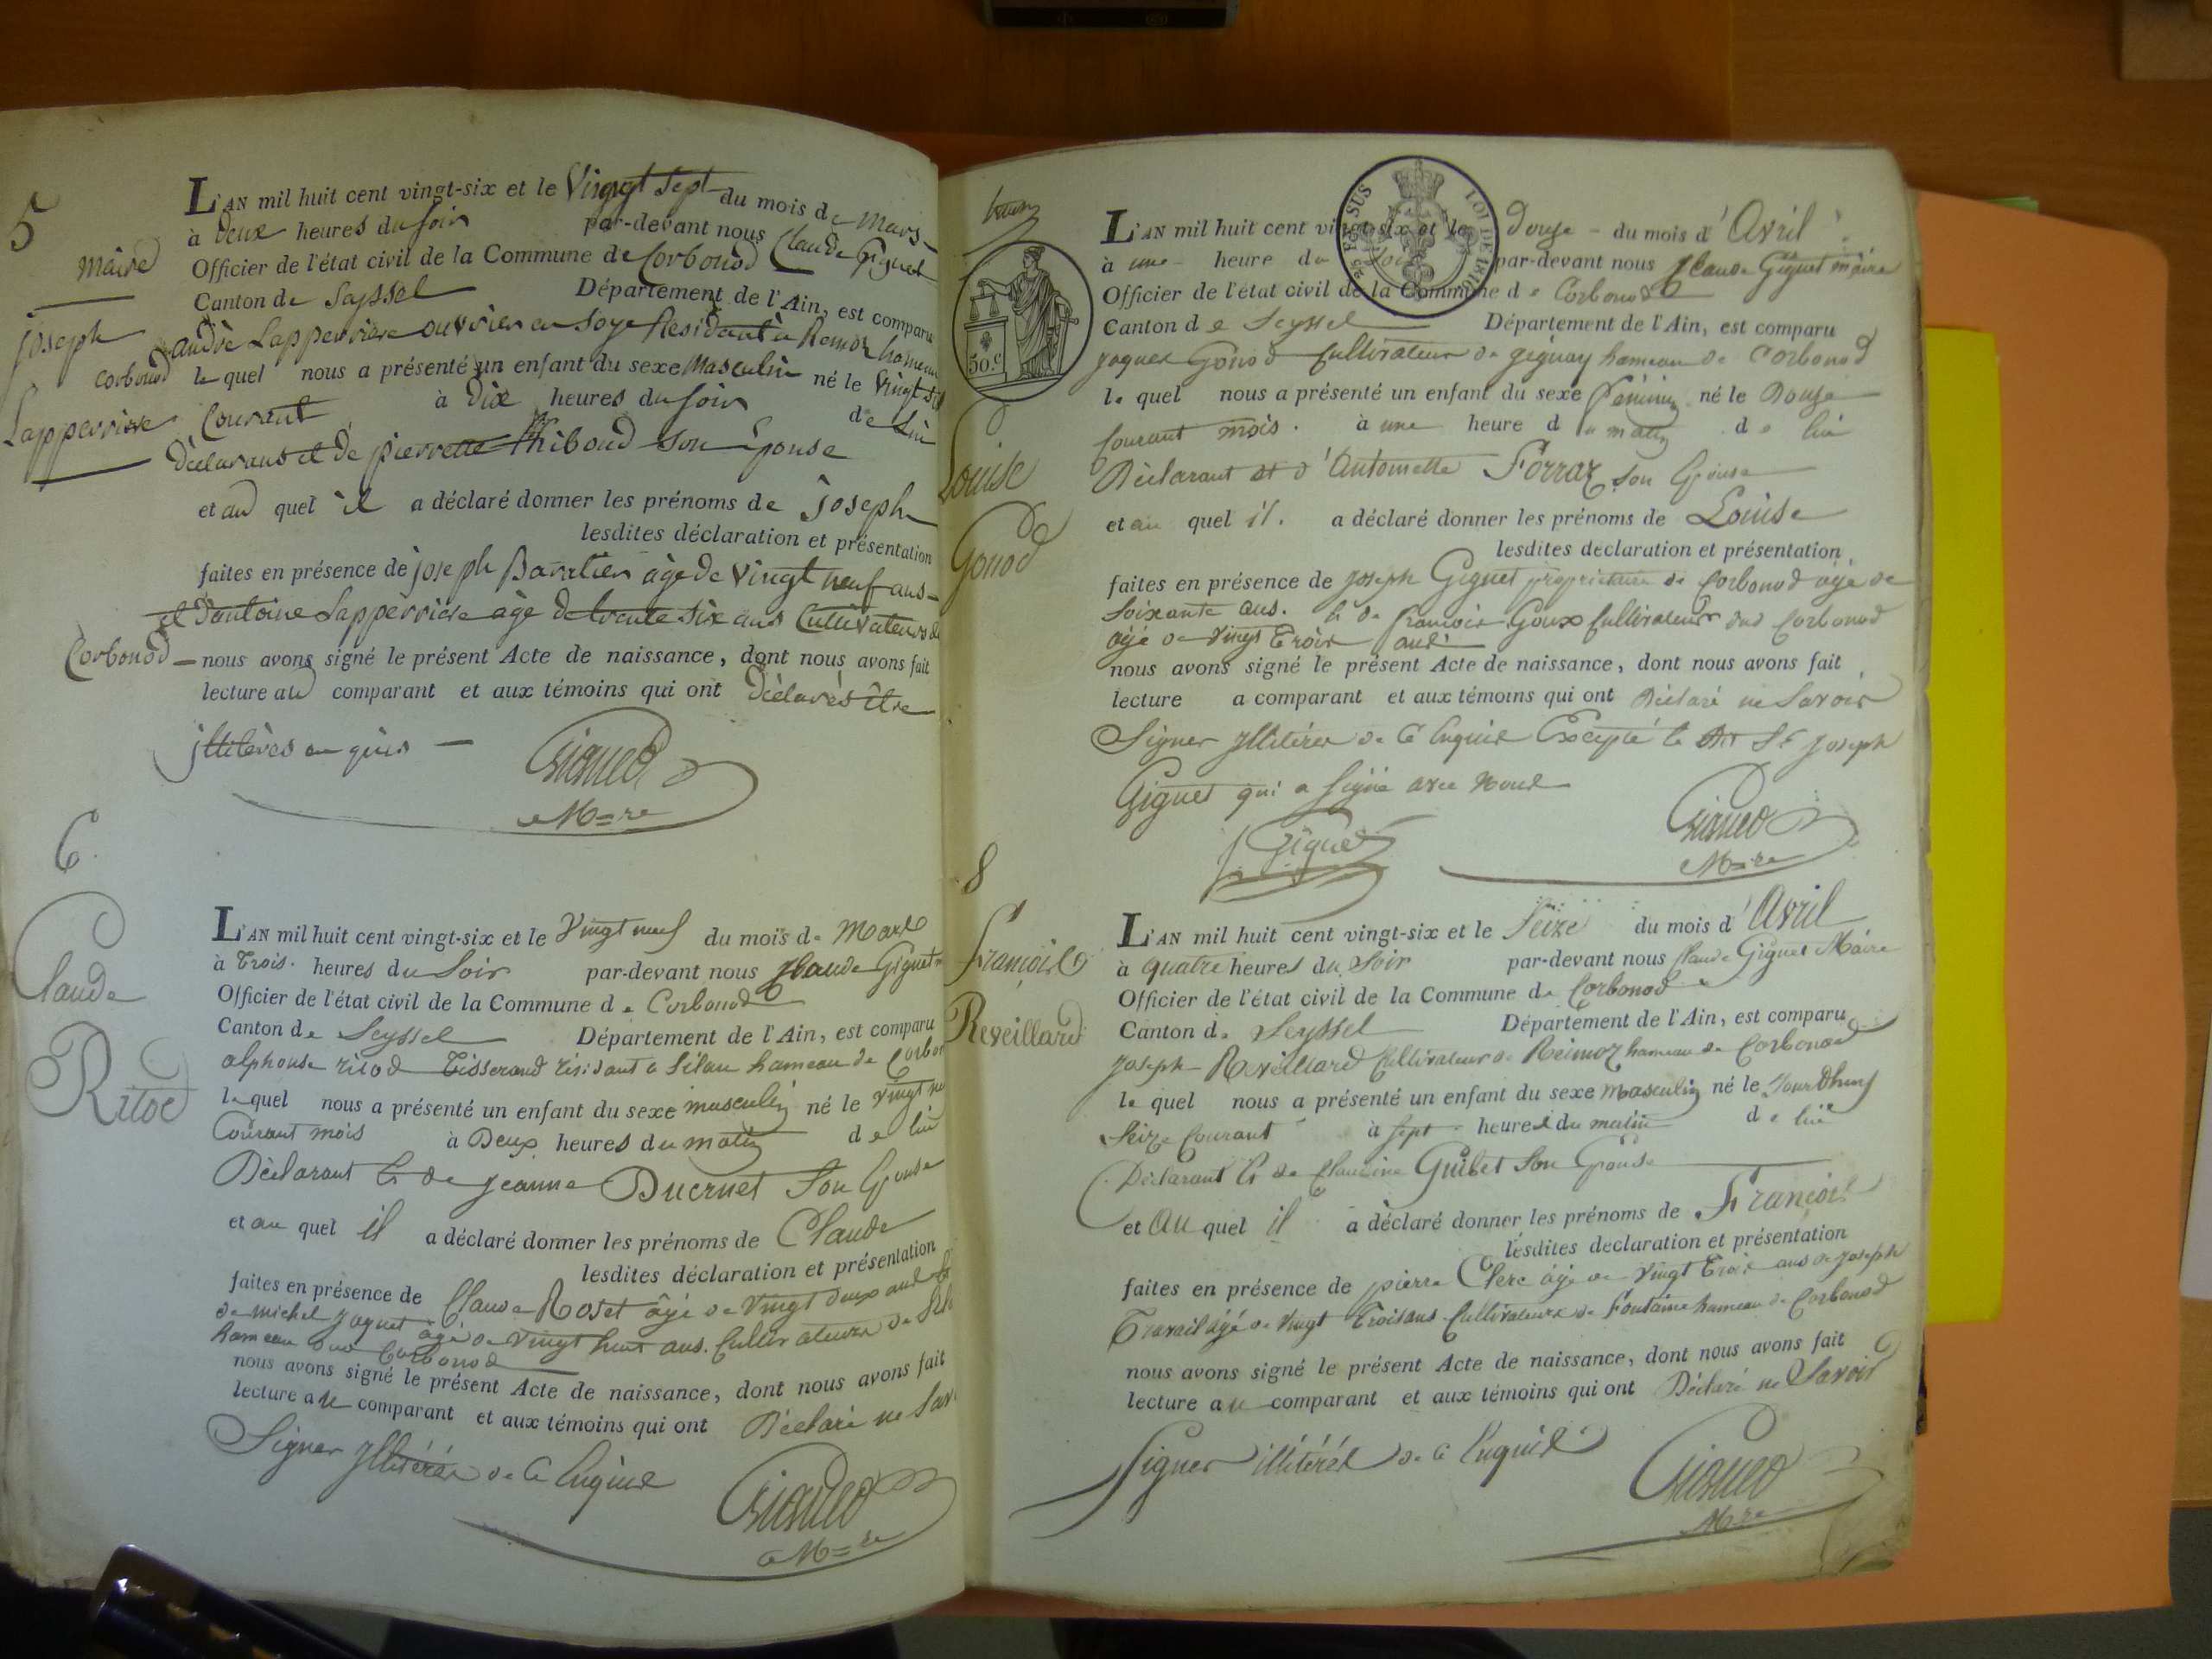 5
L'AN mil huit cent vingt-six et le Vingt Sept du mois de Mars
à Deux heures du soir par-devant nous Claude Giguet
maire
Officier de l'état civil de la Commune de Corbonod
Canton de Sayssel Département de l'Ain, est comparu
andré Lapperriere ouvrier en soye Residant à Remoz hameau
Joseph
corbonod le quel nous a présenté un enfant du sexe Masculin né le Vingt
Lapperriere
Courant à Dix heures du soir de lui
Déclarant et de pierrette Thiboud son Epouse
et au quel il a déclaré donner les prénoms de joseph
lesdites déclaration et présentation
faites en présence de joseph Barratier âge de Vingt neuf ans
et d'antoine Lapperriere age de trente six ans Cultivateurs
Corbonod nous avons signé le présent Acte de naissance, dont nous avons fait
lecture au comparant et aux témoins qui ont Déclarés être
Giguet
Mre
6
Claude
Ritod
L'AN mil huit cent vingt-six et le Vingt neuf du mois de Mars
à Trois heures du Soir par-devant nous Claude Giguet
Officier de l'état civil de la Commune de Corbonod
Canton de Seyssel Département de l'Ain, est comparu
alphonse ritod Tisserand résidant à Silan hameau de
le quel nous a présenté un enfant du sexe masculin né le vingt
Courant mois à Deux heures du matin de lui
Déclarant Et de jeanne Ducruet Son Epouse
et au quel il a déclaré donner les prénoms de Claude
lesdites déclaration et présentation
faites en présence de Claude Roset âgé de Vingt deux ans
de michel jaquet âgé de vingt huit ans. Cultivateurs de
hameau dud Corbonod
nous avons signé le présent Acte de naissance, dont nous avons fait
lecture au comparant et aux témoins qui ont Déclaré ne
Signer Illitérés de Ce Enquis
Giguet
Mre
50.c
25 P% SUS
LOI DE 1816
Louise
Gonod
L'AN mil huit cent vingt-six et le Douze du mois d'Avril
à une heure du Soir par-devant nous Claude Giguet maire
Officier de l'état civil de la Commune de Corbonod
Canton de Seyssel Département de l'Ain, est comparu
jaques Gonod Cultivateur de gignay hameau de Corbonod
le quel nous a présenté un enfant du sexe féminin né le Douze
Courant mois. à une heure du matin de lui
Déclarant et d'Antoinette Forraz son Epouse
et au quel il. a déclaré donner les prénoms de Louise
lesdites declaration et présentation
faites en présence de joseph Giguet propriétaire de Corbonod âgé de
Soixante ans. Et de françois Goux Cultivateur dud Corbonod
âgé de Vingt Trois ans
nous avons signé le présent Acte de naissance, dont nous avons fait
lecture a comparant et aux témoins qui ont Déclaré ne Savoir
Signer Illitérés de Ce Enquis Excepté le Sr joseph
Giguet qui a Signé avec Nous
J Giguet
Giguet
Mre
8
François
Reveillard
L'AN mil huit cent vingt-six et le Seize du mois d'Avril
à quatre heures du Soir par-devant nous Claude Giguet Maire
Officier de l'état civil de la Commune de Corbonod
Canton de Seyssel Département de l'Ain, est comparu
joseph Reveillard Cultivateur de Reimoz hameau de Corbonod
le quel nous a présenté un enfant du sexe masculin né le Jourdhuy
Seize Courant à sept heures du matin de lui
Déclarant Et de Claudine Guibet Son Epouse
et au quel il a déclaré donner les prénoms de François
lesdites declaration et présentation
faites en présence de pierre Clerc âgé de Vingt Trois ans de joseph
Travail âgé de Vingt Trois ans Cultivateurs de Fontaine hameau de Corbonod
nous avons signé le présent Acte de naissance, dont nous avons fait
lecture au comparant et aux témoins qui ont Déclaré ne Savoir
Signer illitérés de Ce Enquis
Giguet
Mre